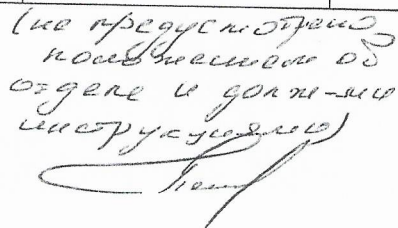 (не предусмотрено
положением об
отделе и долж-ми
инструкциями)